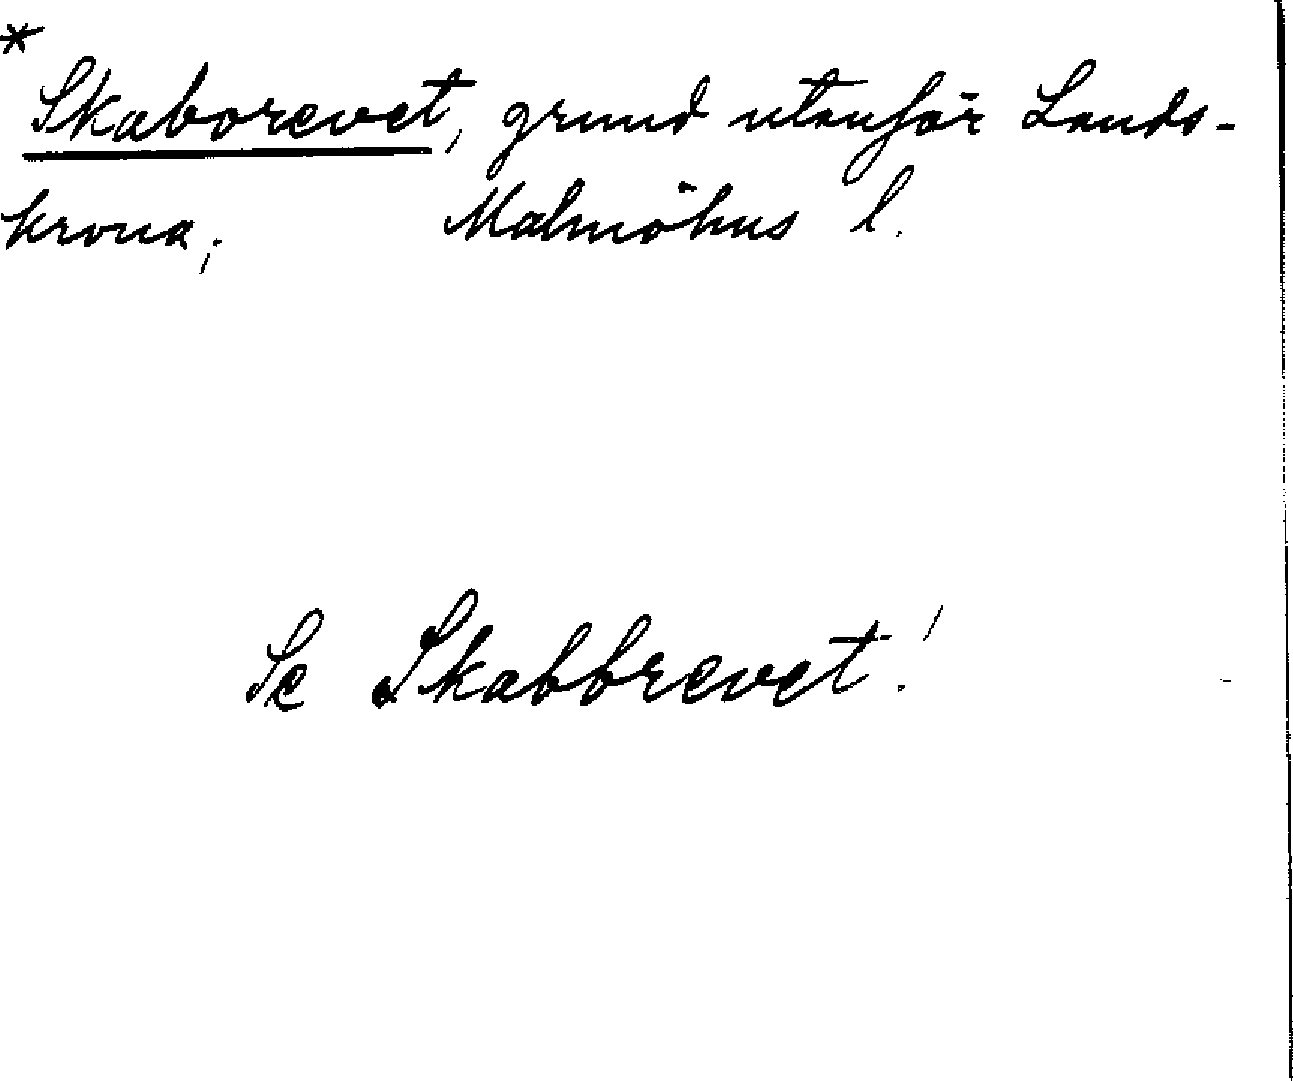 *
Skaborevet, grund utanför Lands-
krona; Malmöhus l.
Se Skabbrevet!